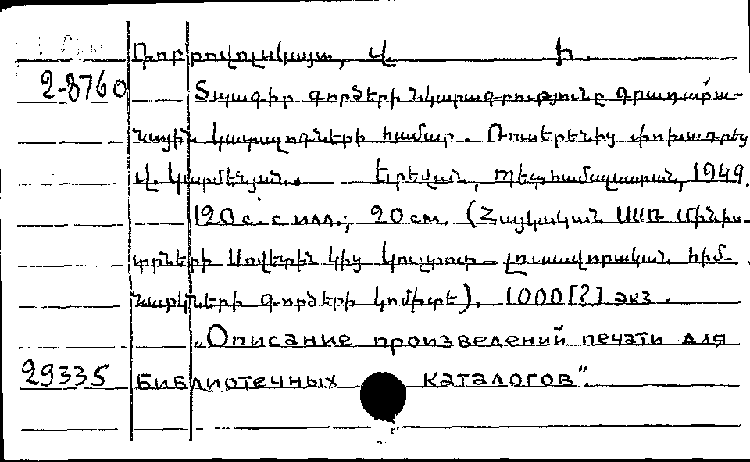 Դոբրովոլսկայա, Վ. Ի.
2-8760 Տպագիր գործերի նկարագրությունը գրադարա-
նային կատալոգների համար. Ռուսերենից փոխադրեց
Վ. Կարմենյան. Երևան, Պետհամալսարան, 1949.
120 с. с илл.; 20 см. (Հայկական ՍՍՌ Մինիս-
տրների Սովետին կից կուլտուր-լուսավորական հիմ-
նարկների գործերի կոմիտե). 1000 [?] экз.
„Описание произведений печати для
29335 библиотечных каталогов".